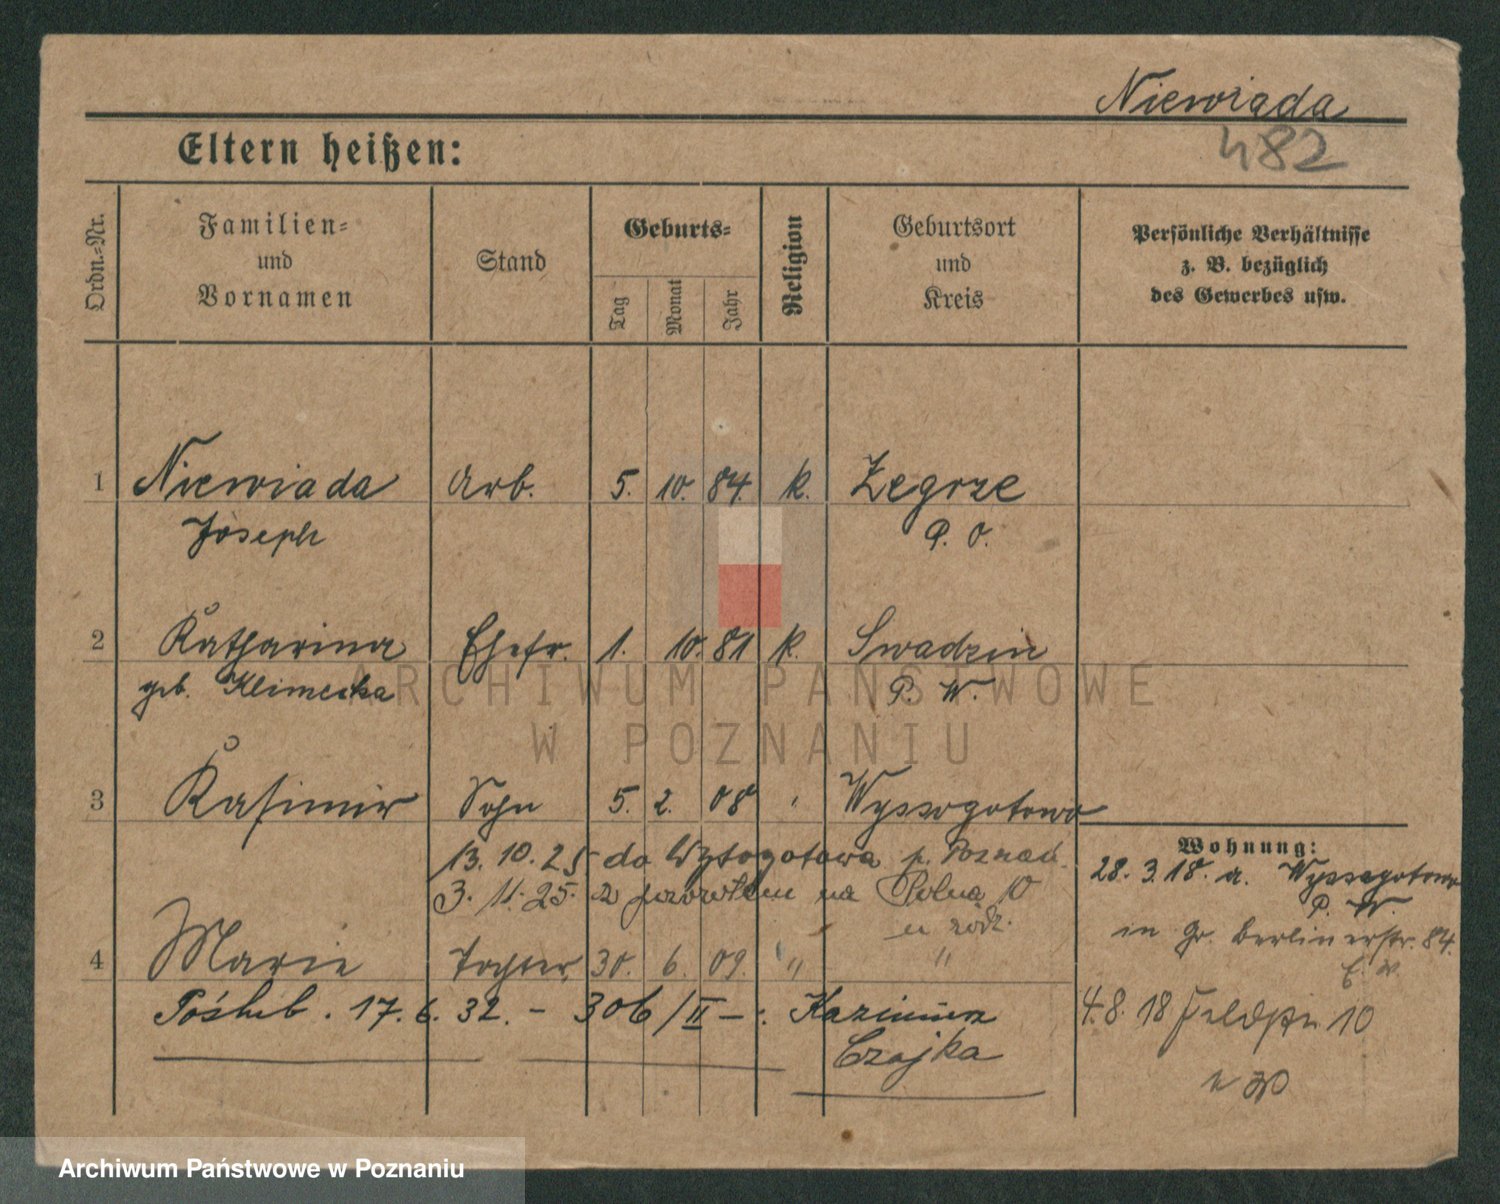 Niewiada
482
Eltern heißen:
Ordn.-Nr.
Familien-
und
Vornamen
Stand
Geburts-
Tag
Monat
Jahr
Religion
Geburtsort
und
Kreis
Persönliche Verhältnisse
z. B. bezüglich
des Gewerbes usw.
1 Niewiada Arb. 5. 10. 84. k. Zegrze
Joseph P. O.
2 Katharina Ehefr. 1. 10. 81 k. Swadzin
geb. Klimecka P. W.
3 Kasimir Sohn 5. 2. 08 " Wyssogotowo
13. 10. 25 do Wysogotowa p. Poznań.
3. 11. 25. z powrotem na Polna 10
u rodz.
4 Marie Tochter 30. 6. 09. " "
Poślub. 17. 6. 32. - 306/II -: Kazimierz
Czajka
Wohnung:
28. 3. 18. a. Wyssogotowo
P. W.
in Gr. Berlinerstr. 84.
4. 8. 18 Feldstr 10
ARCHIWUM PAŃSTWOWE
W POZNANIU
Archiwum Państwowe w Poznaniu